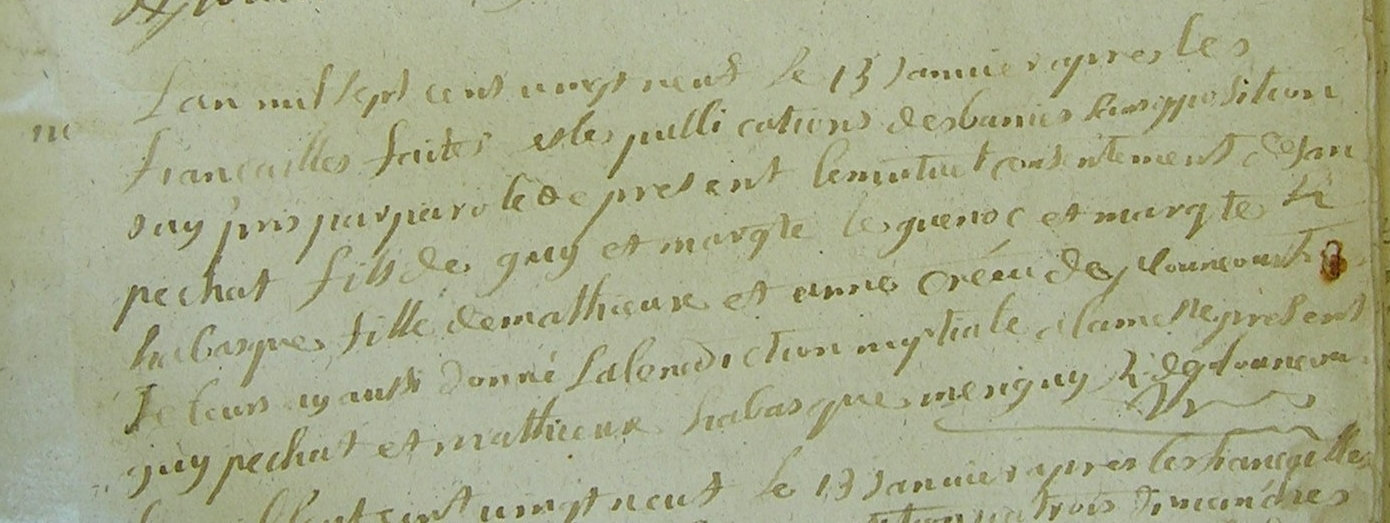 Lan mil sept cent vingt neuf le 13 Janvier apres les
fiançailles faites et les publications des bannies sans opposition
Jay pris par parole de present le mutuel consentement de Jan
pechat fils de guy et margte le guenoc et margte
habasque fille de mathieux et anne créau de
Je leurs ay aussi donné La benediction nuptiale a la messe present
guy pechat et mathieux habasque
cent vingt neuf le 13 Janvier apres les fiançailles
trois dimanches